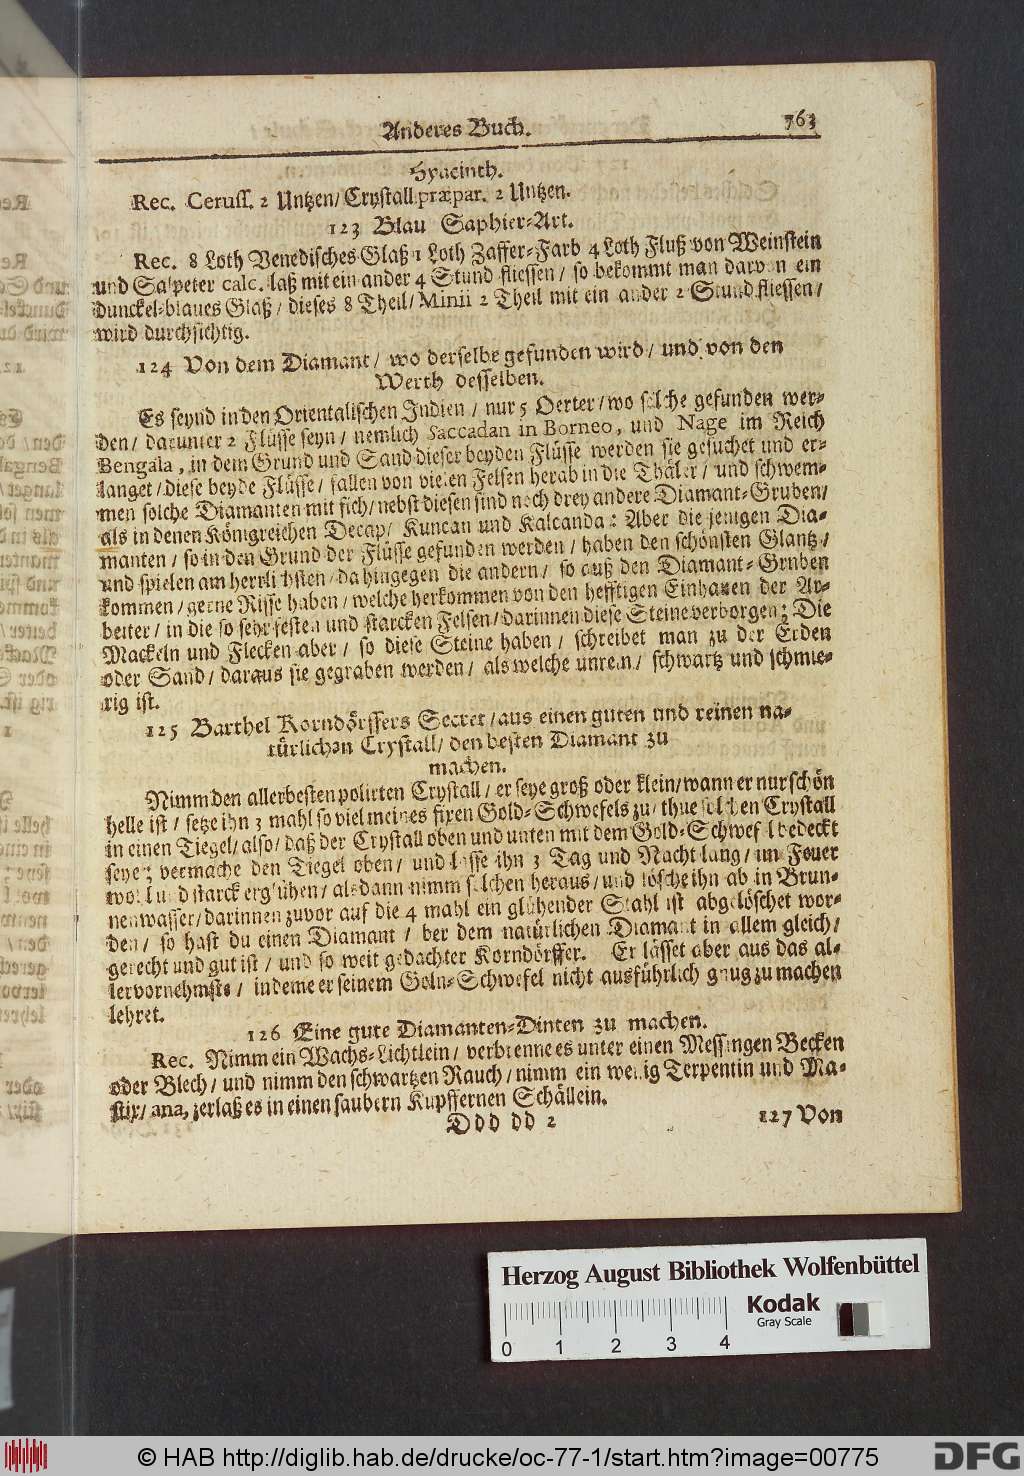 Anderes Buch. 763
Hyacinth.
Rec. Ceruss. 2 Untzen/ Crystall præpar. 2 Untzen.
123 Blau Saphier-Art.
Rec. 8 Loth Venedisches Glaß 1 Loth Zaffer-Farb 4 Loth Fluß von Weinstein
und Salpeter calc. laß mit ein ander 4 Stund fliessen / so bekommt man darvon ein
dunckel-blaues Glaß / dieses 8 Theil / Minii 2 Theil mit ein ander 2 Stund fliessen /
wird durchsichtig.
124 Von dem Diamant / wo derselbe gefunden wird / und von den
Werth desselben.
Es seynd in den Orientalischen Indien / nur 5 Oerter / wo solche gefunden wer-
den / darunter 2 Flüsse seyn / nemlich Saccadan in Borneo, und Nage im Reich
Bengala, in dem Grund und Sand dieser beyden Flüsse werden sie gesuchet und er-
langet / diese beyde Flüsse / fallen von vielen Felsen herab in die Thäler / und schwem-
men solche Diamanten mit sich / nebst diesen sind noch drey andere Diamant-Gruben /
als in denen Königreichen Decap / Kuncau und Kalcanda: Aber die jenigen Dia-
manten / so in den Grund der Flüsse gefunden werden / haben den schönsten Glantz /
und spielen am herrlichsten / da hingegen die andern / so auß den Diamant-Gruben
kommen / gerne Risse haben / welche herkommen von den hefftigen Einhauen der Ar-
beiter / in die so sehr festen und starcken Felsen / darinnen diese Steine verborgen: Die
Mackeln und Flecken aber / so diese Steine haben / schreibet man zu der Erden
oder Sand / daraus sie gegraben werden / als welche unrein / schwartz und schmie-
rig ist.
125 Barthel Korndörffers Secret / aus einen guten und reinen na-
türlichen Crystall / den besten Diamant zu
machen.
Nimm den allerbesten polirten Crystall / er seye groß oder klein / wann er nur schön
helle ist / setze ihn 3 mahl so viel meines fixen Gold-Schwefels zu / thue solchen Crystall
in einen Tiegel / also / daß der Crystall oben und unten mit dem Gold-Schwefel bedeckt
seye; vermache den Tiegel oben / und lasse ihn 3 Tag und Nacht lang / im Feuer
wohl und starck erglühen / alsdann nimm solchen heraus / und lösche ihn ab in Brun-
nenwasser / darinnen zuvor auf die 4 mahl ein glühender Stahl ist abgelöschet wor-
den / so hast du einen Diamant / der dem natürlichen Diamant in allem gleich /
gerecht und gut ist / und so weit gedachter Korndörffer. Er lässet aber aus das al-
lervornehmste / indeme er seinem Goln-Schwefel nicht ausführlich gnug zu machen
lehret.
126 Eine gute Diamanten-Dinten zu machen.
Rec. Nimm ein Wachs-Lichtlein / verbrenne es unter einen Messingen Becken
oder Blech / und nimm den schwartzen Rauch / nimm ein wenig Terpentin und Ma-
stix / ana, zerlaß es in einen saubern Kupffernen Schällein.
Ddd dd 2 127 Von
Herzog August Bibliothek Wolfenbüttel
Kodak
Gray Scale
0 1 2 3 4
© HAB http://diglib.hab.de/drucke/oc-77-1/start.htm?image=00775
DFG